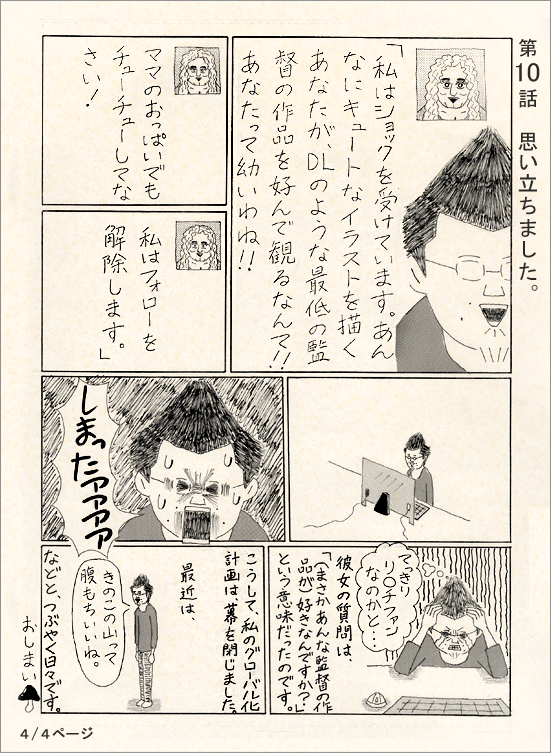 第10話 思い立ちました。
「私はショックを受けています。あん
なにキュートなイラストを描く
あなたが、DLのような最低の監
督の作品を好んで観るなんて!!
あなたって幼いわね!!
ママのおっぱいでも
チューチューしてな
さい!
私はフォローを
解除します。」
しまったァァァァ
てっきり
リ〇チファン
なのかと…
彼女の質問は、
「(まさかあんな監督の作
品が)好きなんですか?」
という意味だったのです。
こうして、私のグローバル化
計画は幕を閉じました。
最近は、
きのこの山って
腹もちいいね。
などと、つぶやく日々です。
おしまい
4/4ページ